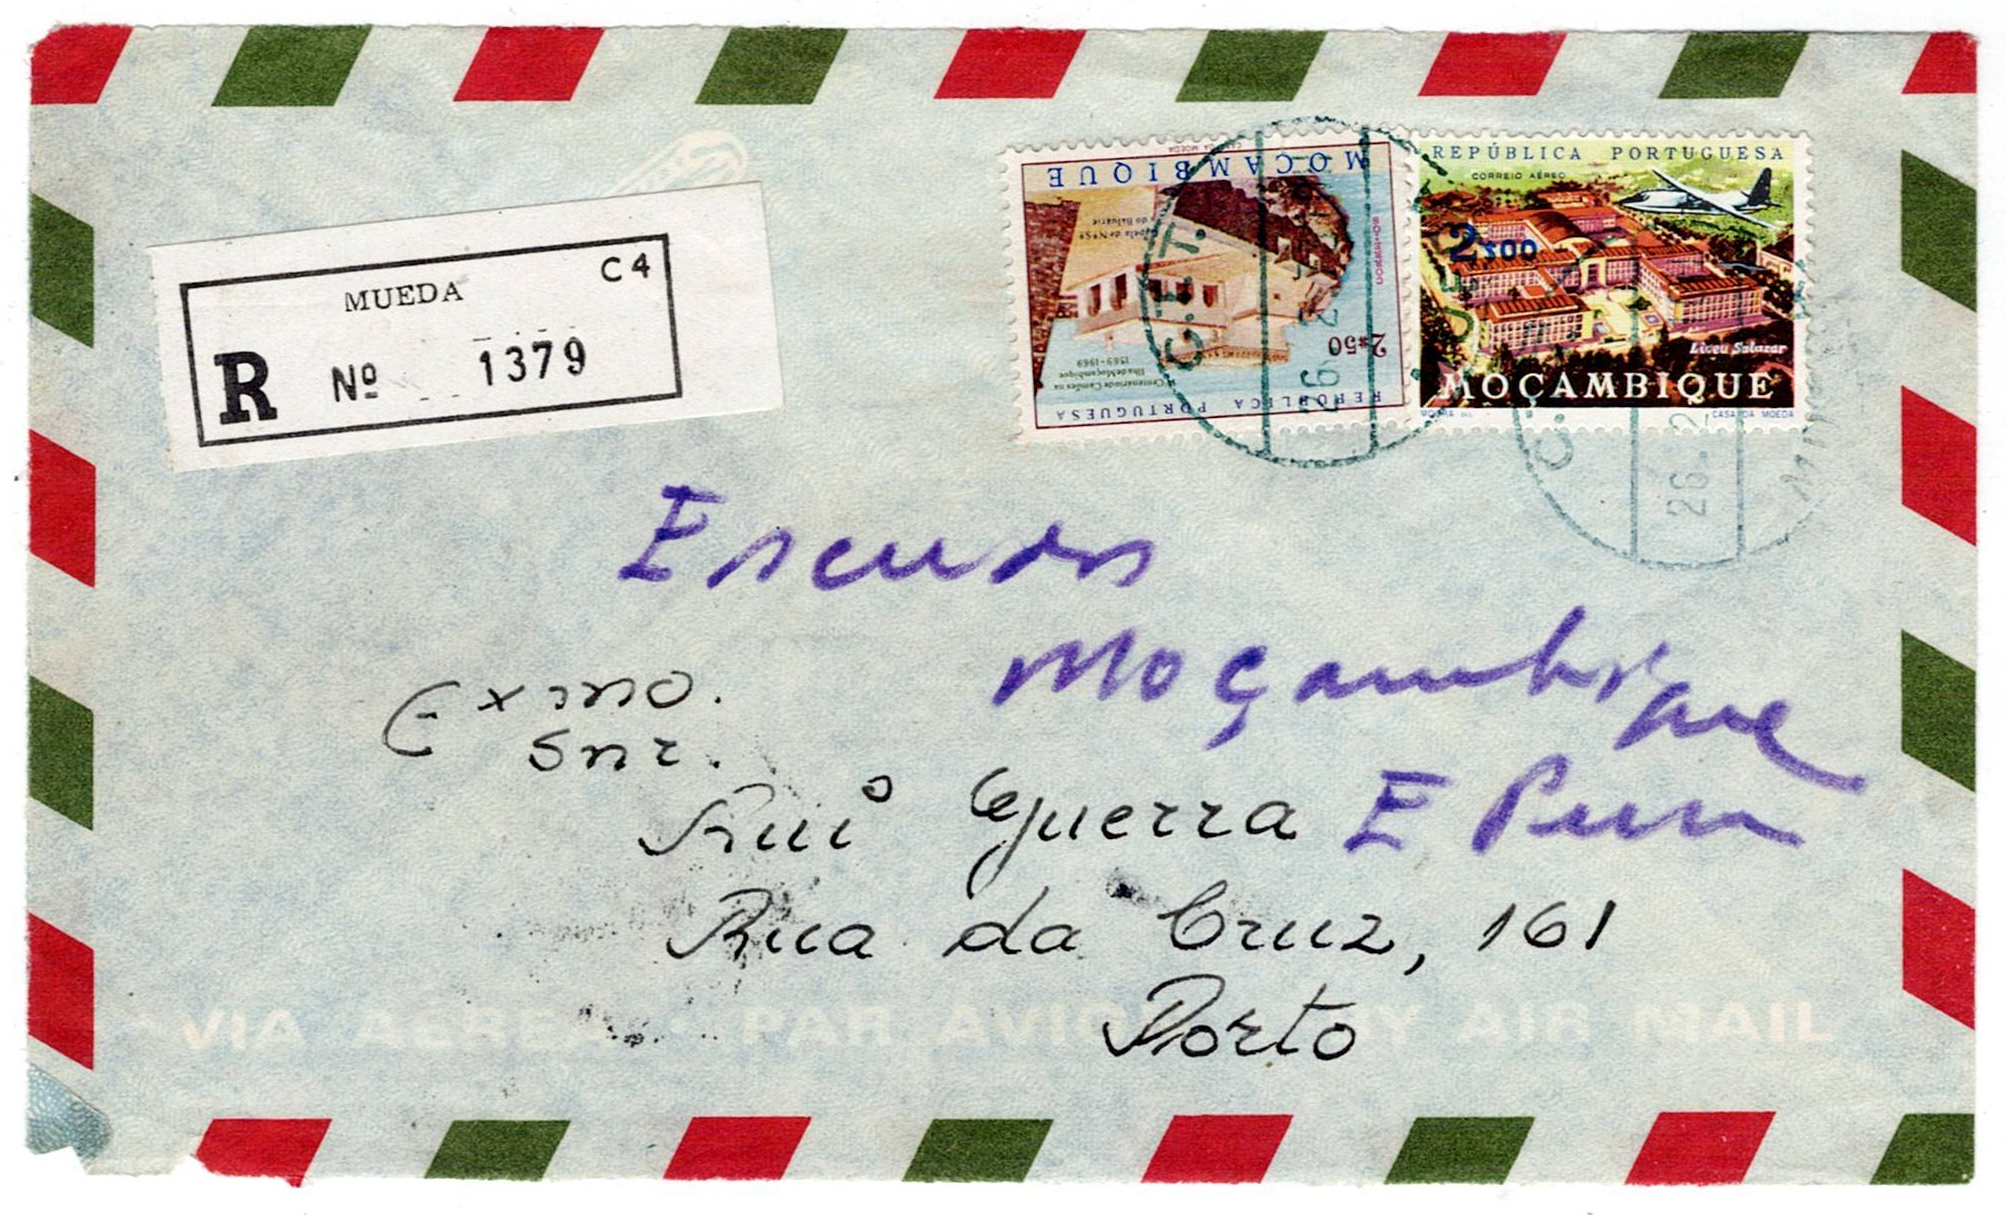 REPÚBLICA PORTUGUESA
CORREIO AÉREO
2$00
Liceu Salazar
MOÇAMBIQUE
CASA DA MOEDA
REPÚBLICA PORTUGUESA
Centenário de Camões na
Ilha de Moçambique
1569-1969
2$50
Capela de Nª Sª
do Baluarte
MOÇAMBIQUE
CASA DA MOEDA
C.E.T.
26. 2
C.
26. 2
MUEDA
C4
R Nº 1379
Escudos
Moçambique
E Pum
Exmo.
Snr.
Rui Guerra
Rua da Cruz, 161
Porto
VIA AEREA · PAR AVION BY AIR MAIL